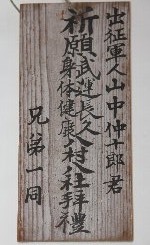 出征軍人山中仲十郎君
祈願武運長久八村八社拝禮
身体健康
兄弟一同